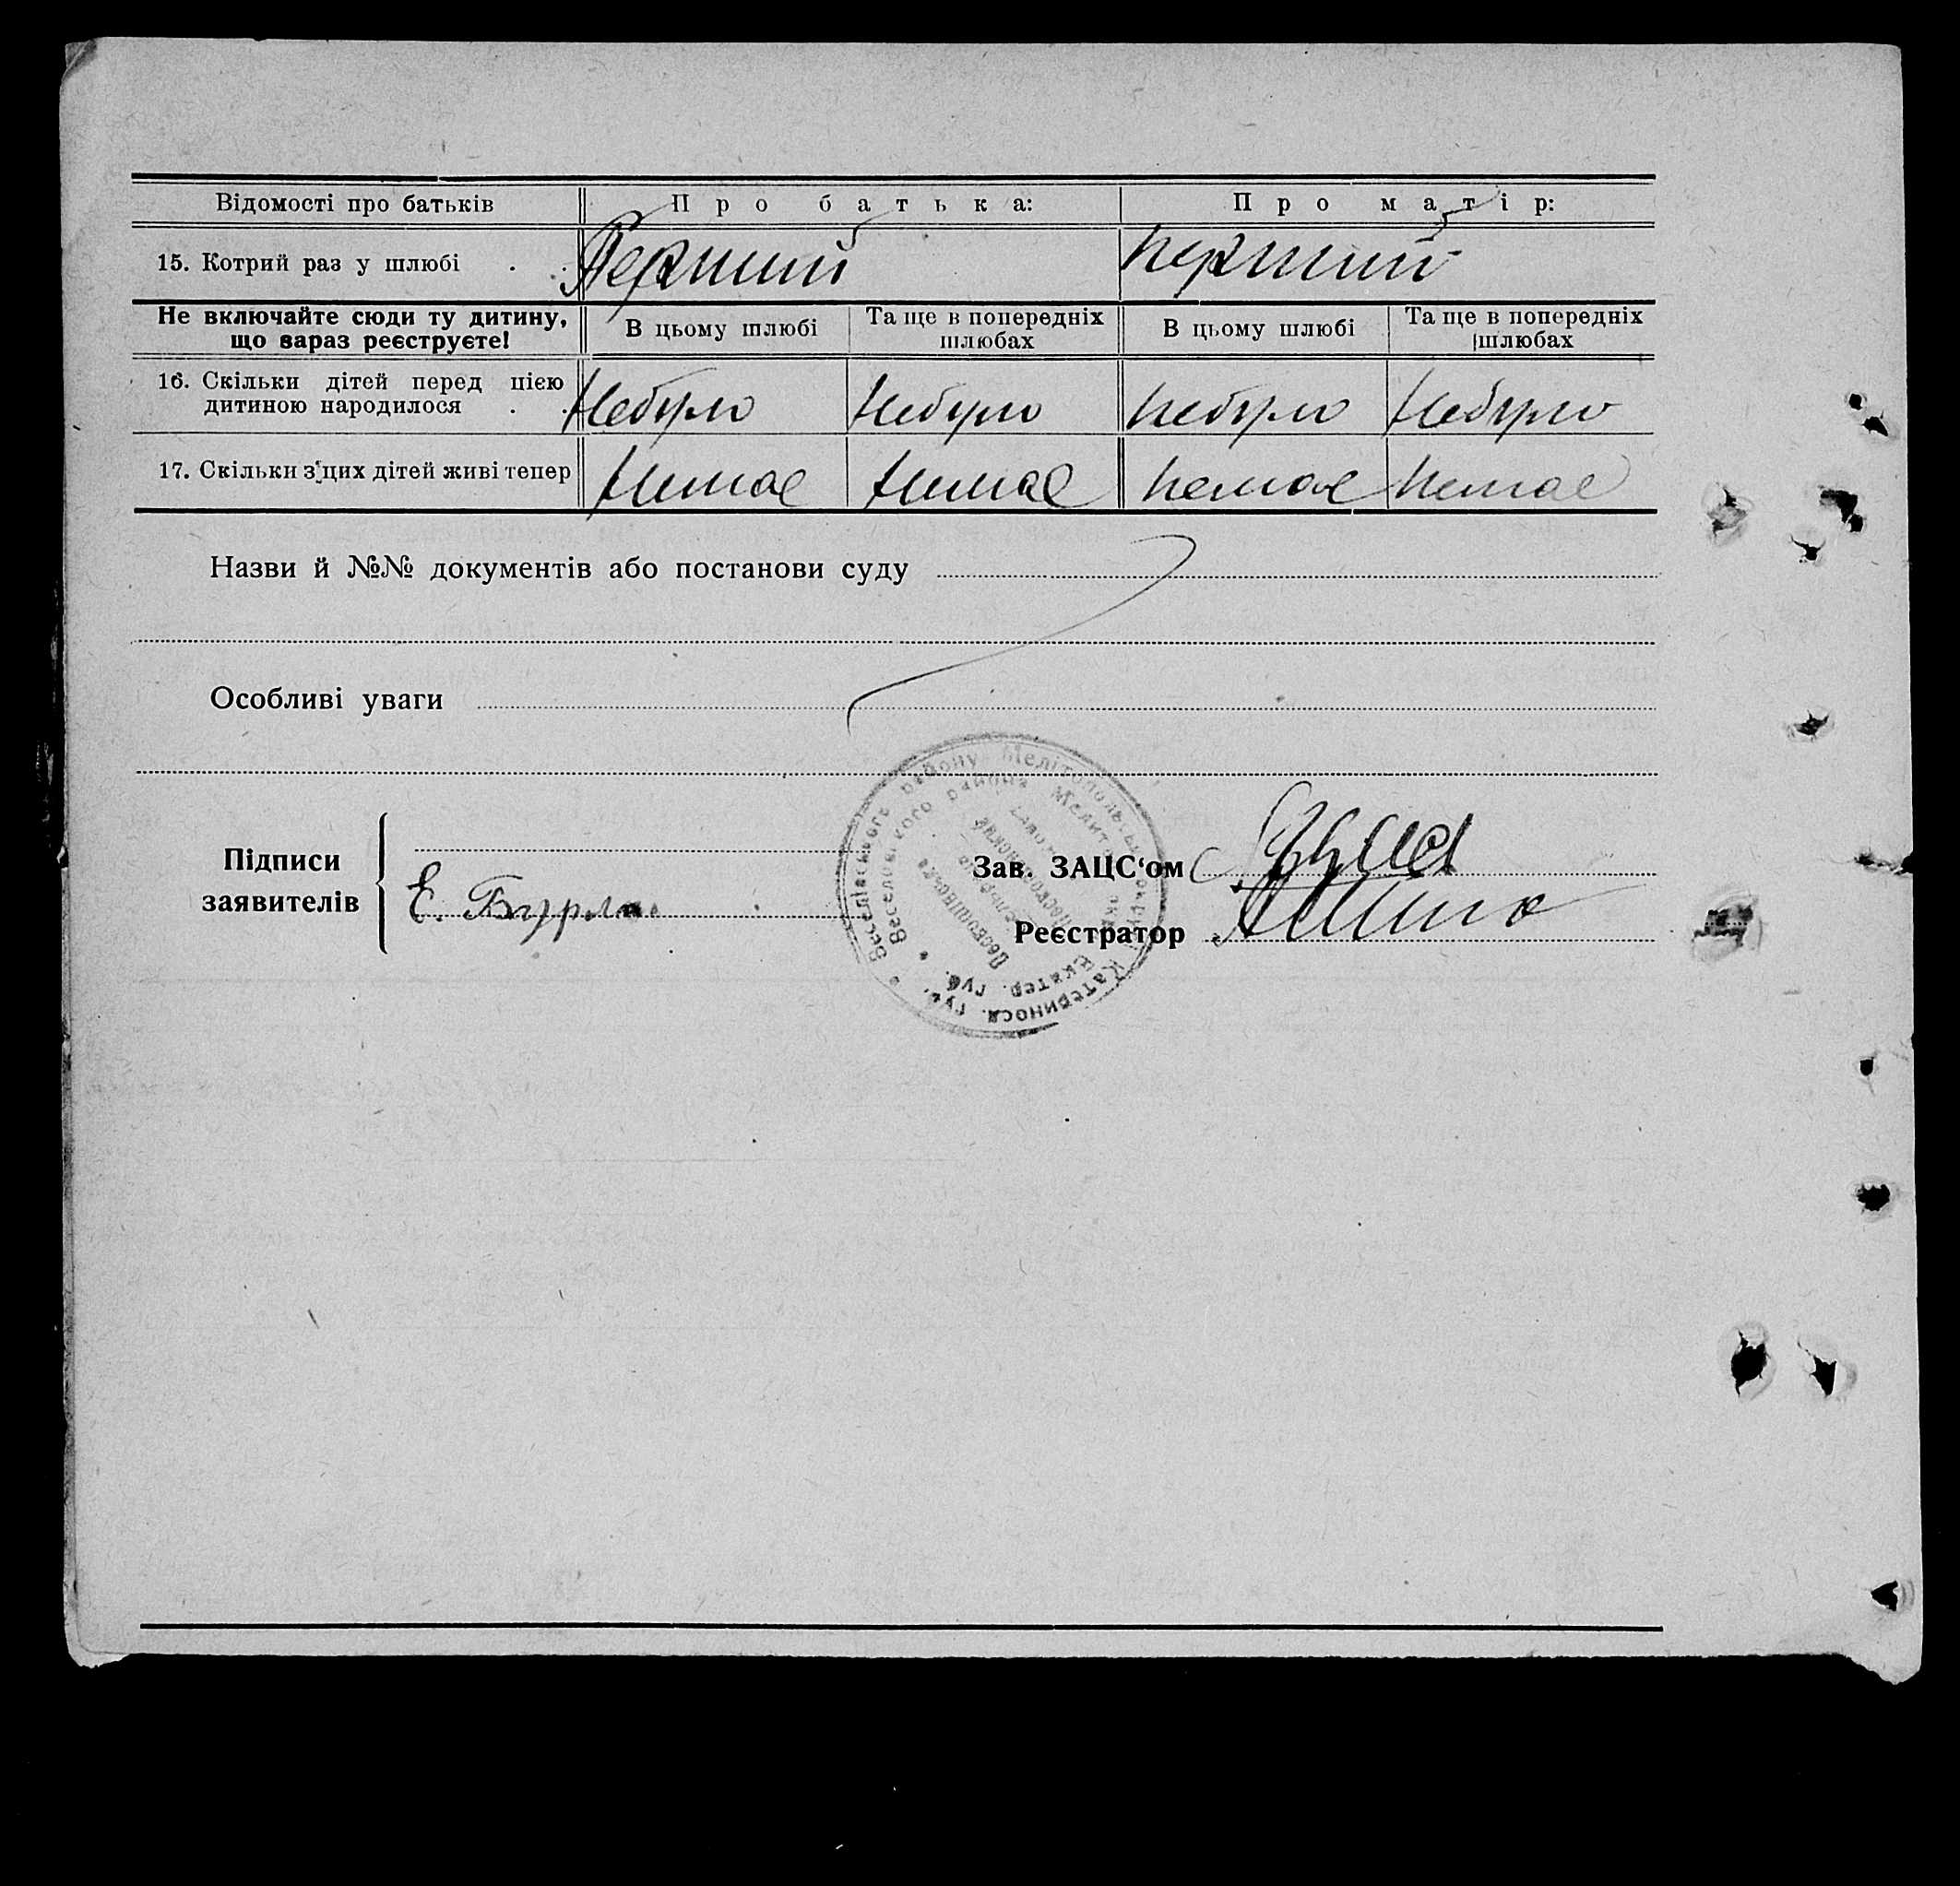 Відомості про батьків Про батька: Про матір:
15. Котрий раз у шлюбі . . Перший перший
Не включайте сюди ту дитину, що вараз реєструєте! В цьому шлюбі Та ще в попередніх шлюбах В цьому шлюбі Та ще в попередніх шлюбах
16. Скільки дітей перед цією
дитиною народилося . . Небуло Небуло небуло Небуло
17. Скільки з цих дітей живі тепер Немає Немає немає немає
Назви й №№ документів або постанови суду
Особливі уваги
Підписи
заявителів
Е. Бурла
Зав. ЗАЦС‘ом
Реєстратор
Веселівського району Мелітопольськ. округи Катеринося. губ.
Веселовского района Мелитоп. окр. Екатер. губ.